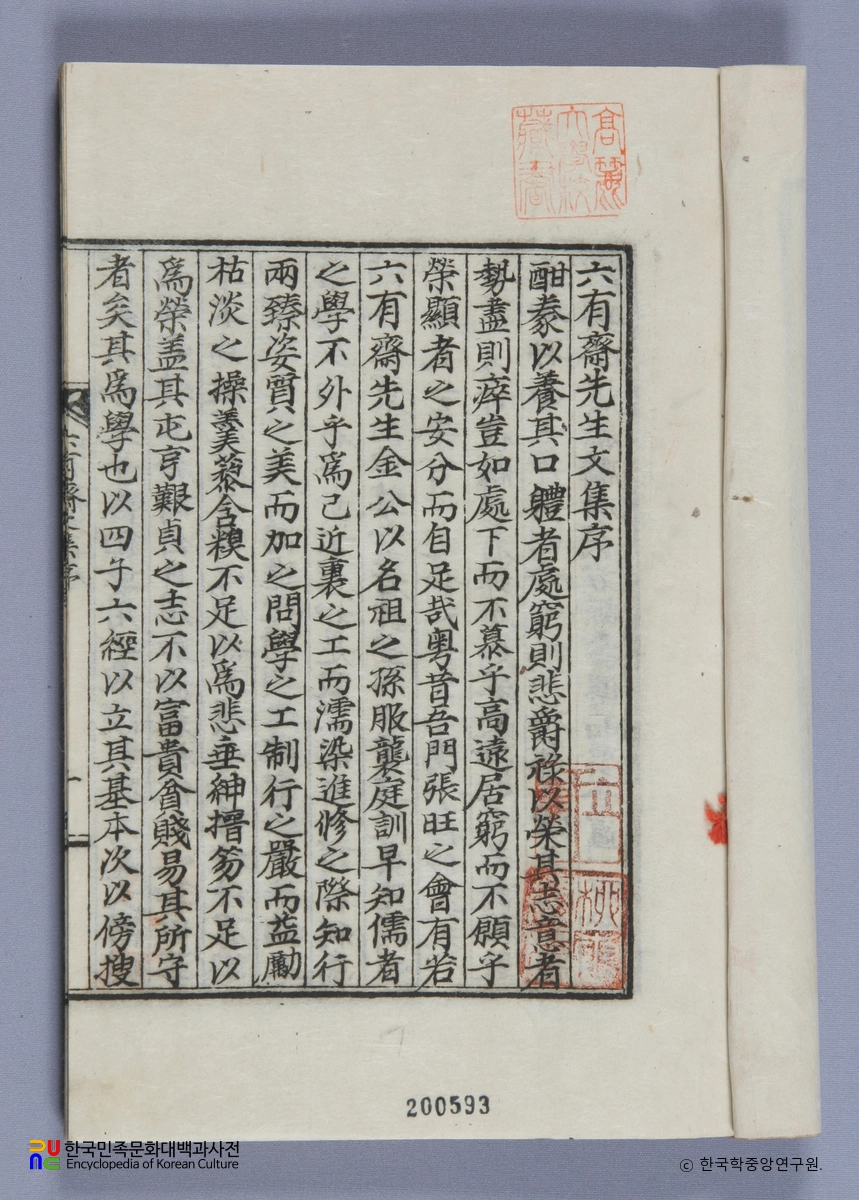 六有齋先生文集序
酣豢以養其口軆者處窮則悲爵祿以榮其志意者
勢盡則瘁豈如處下而不慕乎高遠居窮而不願乎
榮顯者之安分而自足哉粤昔吾門張旺之會有若
六有齋先生金公以名祖之孫服襲庭訓早知儒者
之學不外乎爲己近裏之工而濡染進修之際知行
兩臻姿質之美而加之問學之工制行之嚴而益勵
枯淡之操羹藜含糗不足以爲悲垂紳搢笏不足以
爲榮盖其屯亨艱貞之志不以富貴貧賤易其所守
者矣其爲學也以四子六經以立其基本次以傍搜
六有齋文集序
一
200593
한국민족문화대백과사전
Encyclopedia of Korean Culture
© 한국학중앙연구원.